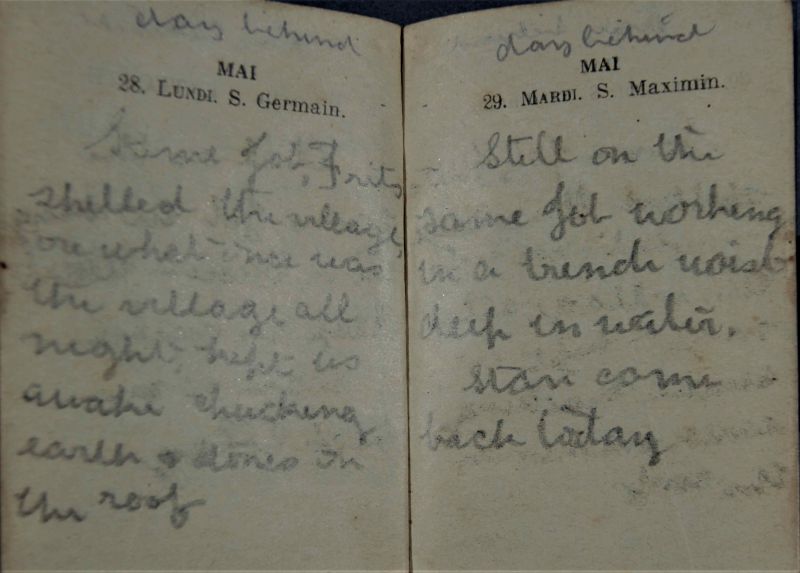 day behind
MAI
28. LUNDI. S. Germain.
Same Job, Fritz
shelled the village,
or what once was
the village, all
night, kept us
awake chucking
earth & stones on
the roof
day behind
MAI
29. MARDI. S. Maximin.
Still on the
same Job working
in a trench waist
deep in water.
Stan come
back today